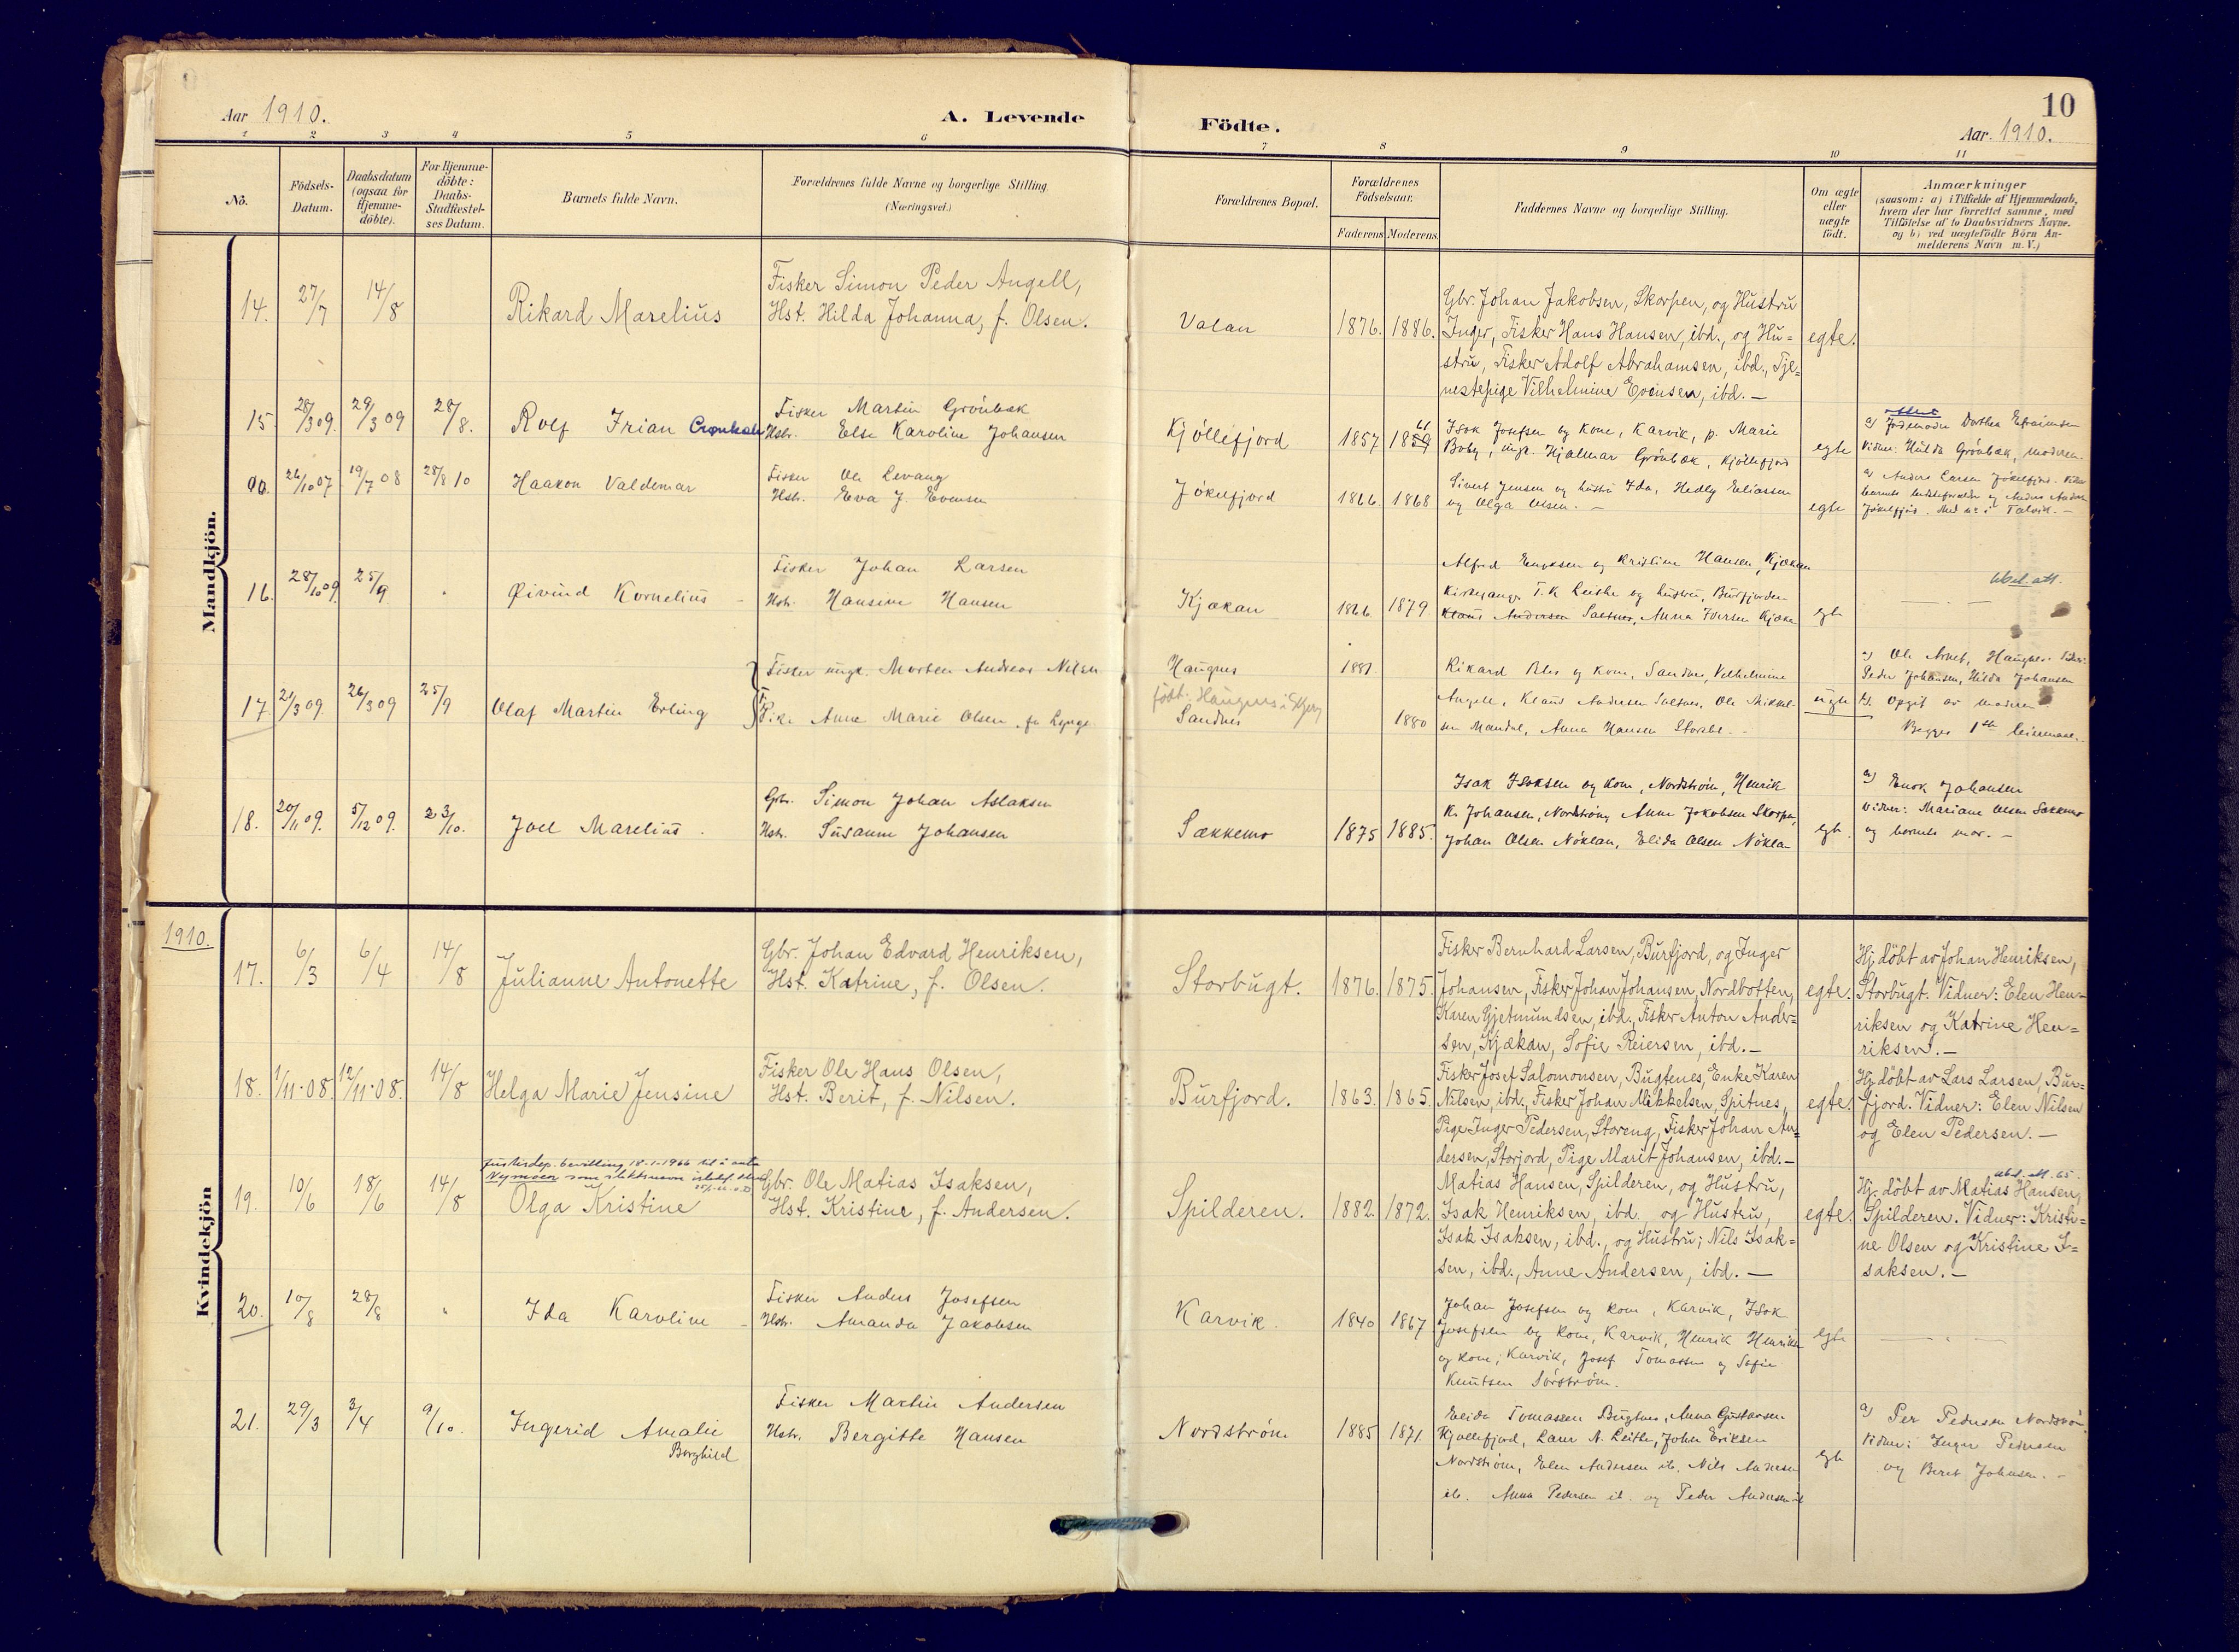 10
Aar 1910.
A. Levende Födte.
Aar. 1910.
1 2 3 4 5 6 7 8 9 10 11
No.
Födsels-Datum.
Daabsdatum (ogsaa for Hjemme-döbte).
For Hjemme-döbte: Daabs-Stadfæstel-ses Datum.
Barnets fulde Navn.
Forældrenes fulde Navne og borgerlige Stilling
(Næringsvei.)
Forældrenes Bopæl.
Forældrenes Födselsaar.
Faderens Moderens.
Faddernes Navne og borgerlige Stilling.
Om ægte eller uægte födt.
Anmærkninger
(saasom: a) i Tilfælde af Hjemmedaab,
hvem der har forrettet samme, med
Tilföielse af to Daabsvidners Navne.
og b) ved uægtefödte Börn An-
melderens Navn m. V.)
Mandkjön.
14. 27/7 14/8 Rikard Marelius
Fisker Simon Peder Angell,
Hst. Hilda Johanna, f. Olsen.
Valan 1876. 1886.
Gbr. Johan Jakobsen, Skorpen, og Hustru
Inger, Fisker Hans Hansen, ibd., og Hu=
stru, Fisker Adolf Abrahamsen, ibd., Tje=
nestepige Vilhelmine Evensen, ibd. —
egte.
15. 28/3 09. 29/3 09 28/8. Rolf Irian
Fisker Martin Grönbæk
Hstr. Else Karoline Johansen
Kjöllefjord 1857 1859 61
Isak Josefsen og kone, Karvik, p. Marie
Boby, ungk. Hjalmar Grönbæk, Kjöllefjord
egte
a) Jodemoder Dorthea Efraimsen
Vidner: Hilda Grönbæk, moderen.
26/10 07 19/7 08 28/8 10 Haakon Valdemar
Fisker Ole Levang
Hstr. Eva J. Evensen
Jökelfjord 1866 1868
Sivert Jensen og hustru Ida, Hedly Eliassen
og Olga Olsen. —
egte
a) Anders Larsen Jökelfjord.
Jökelfjord. i Talvik. —
16. 28/10 09. 25/9 " Øivind Kornelius
Fisker Johan Larsen
Hstr. Hansine Hansen
Kjækan 1866. 1879.
Alfred og Kristine Hansen, Kjækan
Kirkesang. T. K. Leithe og hustru, Burfjorden
Klaus Andersen Saltnes, Anna Iversen Kjækan
egte
Utbet. att.
17. 21/3 09. 26/3 09 25/9 Olaf Martin Erling
Fisker ungk. Morten Andreas Nilsen
Pike Anne Marie Olsen
Haugnes 1881.
födt. Haugnes i
Sandnes 1880
Rikard og kone, Sandnes, Vilhelmine
Angell, Klaus Andersen Saltnes, Ole Mikkel-
sen Mandal, Anna Hansen
uegte
a) Ole Arnet, Haugnes.
Peder Johansen, Hilda Johansen
b) Opgit av moderen
Begges 1ste leiermaal.
18. 20/11 09. 5/12 09. 23/10. Joel Marelius.
Gbr. Simon Johan Aslaksen
Hstr. Susanne Johansen
Sækkemo 1875 1885.
Isak Isaksen og kone, Nordström, Henrik
K. Johansen, Nordström, Anne Jakobsen Skorpa,
Johan Olsen Nöklan, Elida Olsen Nöklan
egte.
a) Enok Johansen
Vidner: Mariane Olsen Sækkemo
og barnets mor. —
1910.
Kvindekjön
17. 6/3 6/4 14/8 Julianne Antonette
Gbr. Johan Edvard Henriksen,
Hst. Katrine, f. Olsen.
Storbugt. 1876. 1875.
Fisker Bernhard Larsen, Burfjord, og Inger
Johansen, Fisker Johan Johansen, Nordbotten,
Karen Gjetmundsen, ibd., Fisker Anton Ander=
sen, Kjækan, Sofie Reiersen, ibd. —
egte.
Hj. döbt av Johan Henriksen,
Storbugt. Vidner: Elen Hen=
riksen og Katrine Hen=
riksen. —
18. 1/11-08. 12/11-08. 14/8 Helga Marie Jensine
Fisker Ole Hans Olsen,
Hst. Berit, f. Nilsen.
Burfjord. 1863. 1865.
Fisker Josef Salomonsen, Bugtenes, Enke Karen
Nilsen, ibd., Fisker Johan Mikkelsen, Spitnes,
Pige Inger Pedersen, Storeng, Fisker Johan An=
dersen, Storjord, Pige Marit Johansen, ibd. —
egte.
Hj. döbt av Lars Larsen, Bur=
fjord. Vidner: Elen Nilsen
og Elen Pedersen. —
Justisdep. bevilling 18-1-1966 til å anta
Nymoen som slektsnavn istedf.
19. 10/6 18/6 14/8 Olga Kristine
Gbr. Ole Matias Isaksen,
Hst. Kristine, f. Andersen.
Spilderen. 1882. 1872.
Matias Hansen, Spilderen, og Hustru,
Isak Henriksen, ibd., og Hustru,
Isak Isaksen, ibd., og Hustru; Nils Isak=
sen, ibd., Anne Andersen, ibd. —
egte.
utbet. att. 65.
Hj. döbt av Matias Hansen,
Spilderen. Vidner: Kristi=
ne Olsen og Kristine I=
saksen. —
20. 10/8 28/8 " Ida Karoline
Fisker Anders Josefsen
Hstr. Amanda Jakobsen
Karvik. 1840 1867
Johan Josefsen og kone, Karvik, Isak
Josefsen og kone, Karvik, Henrik Henriksen
og kone, Karvik, Josef Tomassen og Sofie
Knutsen Sörström.
egte
21. 29/3 3/4 9/10. Ingerid Amalie
Borghild
Fisker Martin Andersen
Hstr. Bergitte Hansen
Nordström 1885 1871.
Elida Tomassen Bugtnes, Anna Gustavsen
Kjöllefjord, Laur. A. Leithe, Johan Eriksen
Nordström, Elen Andersen ib. Nils Andersen
ib. Anna Pedersen ib. og Peder Andersen ib
egte
a) Per Pedersen Nordström
Vidner: Inger Pedersen
og Beret Johnsen. —